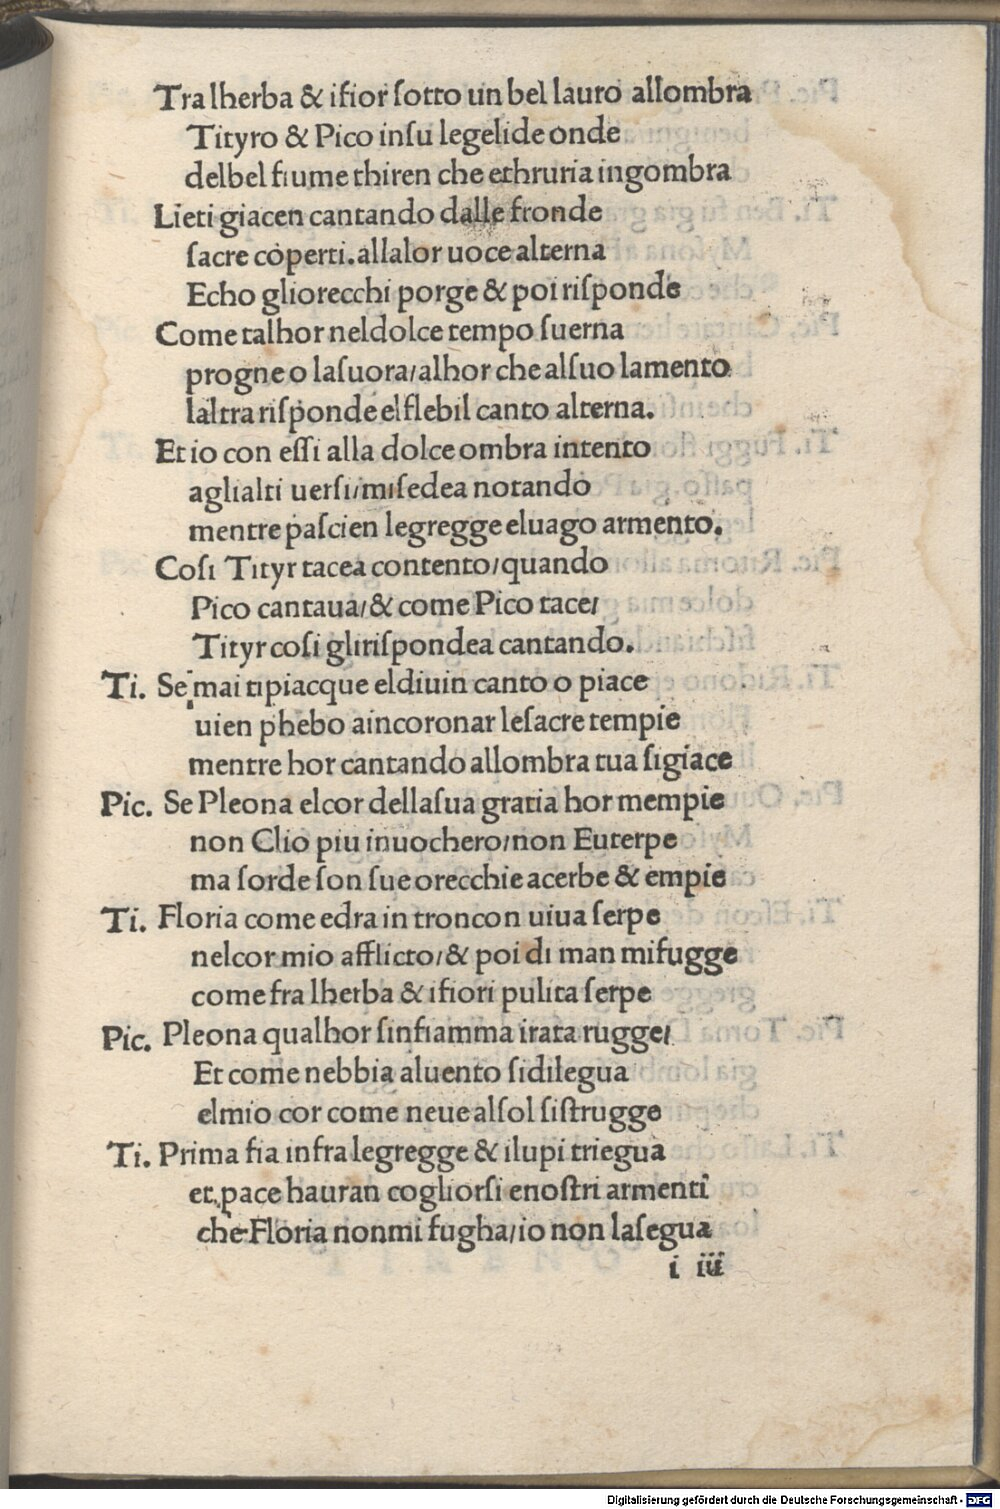 Tra lherba & ifior ſotto un bel lauro allombra
Tityro & Pico inſu legelide onde
delbel fiume thiren che ethruria ingombra
Lieti giacen cantando dalle fronde
ſacre coperti.allalor uoce alterna
Echo gliorecchi porge & poi riſponde
Come talhor neldolce tempo ſuerna
progne o laſuora/alhor che alſuo lamento
laltra riſponde elflebil canto alterna.
Et io con eſſi alla dolce ombra intento
aglialti uerſi/miſedea notando
mentre paſcien legregge eluago armento.
Coſi Tityr tacea contento/quando
Pico cantaua/& come Pico tace/
Tityr coſi gliriſpondea cantando.
Ti. Se mai tipiacque eldiuin canto o piace
uien phebo aincoronar leſacre tempie
mentre hor cantando allombra tua ſigiace
Pic. Se Pleona elcor dellaſua gratia hor mempie
non Clio piu inuochero/non Euterpe
ma ſorde ſon ſue orecchie acerbe & empie
Ti. Floria come edra in troncon uiua ſerpe
nelcor mio afflicto/& poi di man mifugge
come fra lherba & ifiori pulita ſerpe
Pic. Pleona qualhor ſinfiamma irata rugge/
Et come nebbia aluento ſidilegua
elmio cor come neue alſol ſiſtrugge
Ti. Prima fia infra legregge & ilupi triegua
et pace hauran cogliorſi enoſtri armenti
che Floria nonmi fugha/io non laſegua
i iii
Digitalisierung gefördert durch die Deutsche Forschungsgemeinschaft - DFG